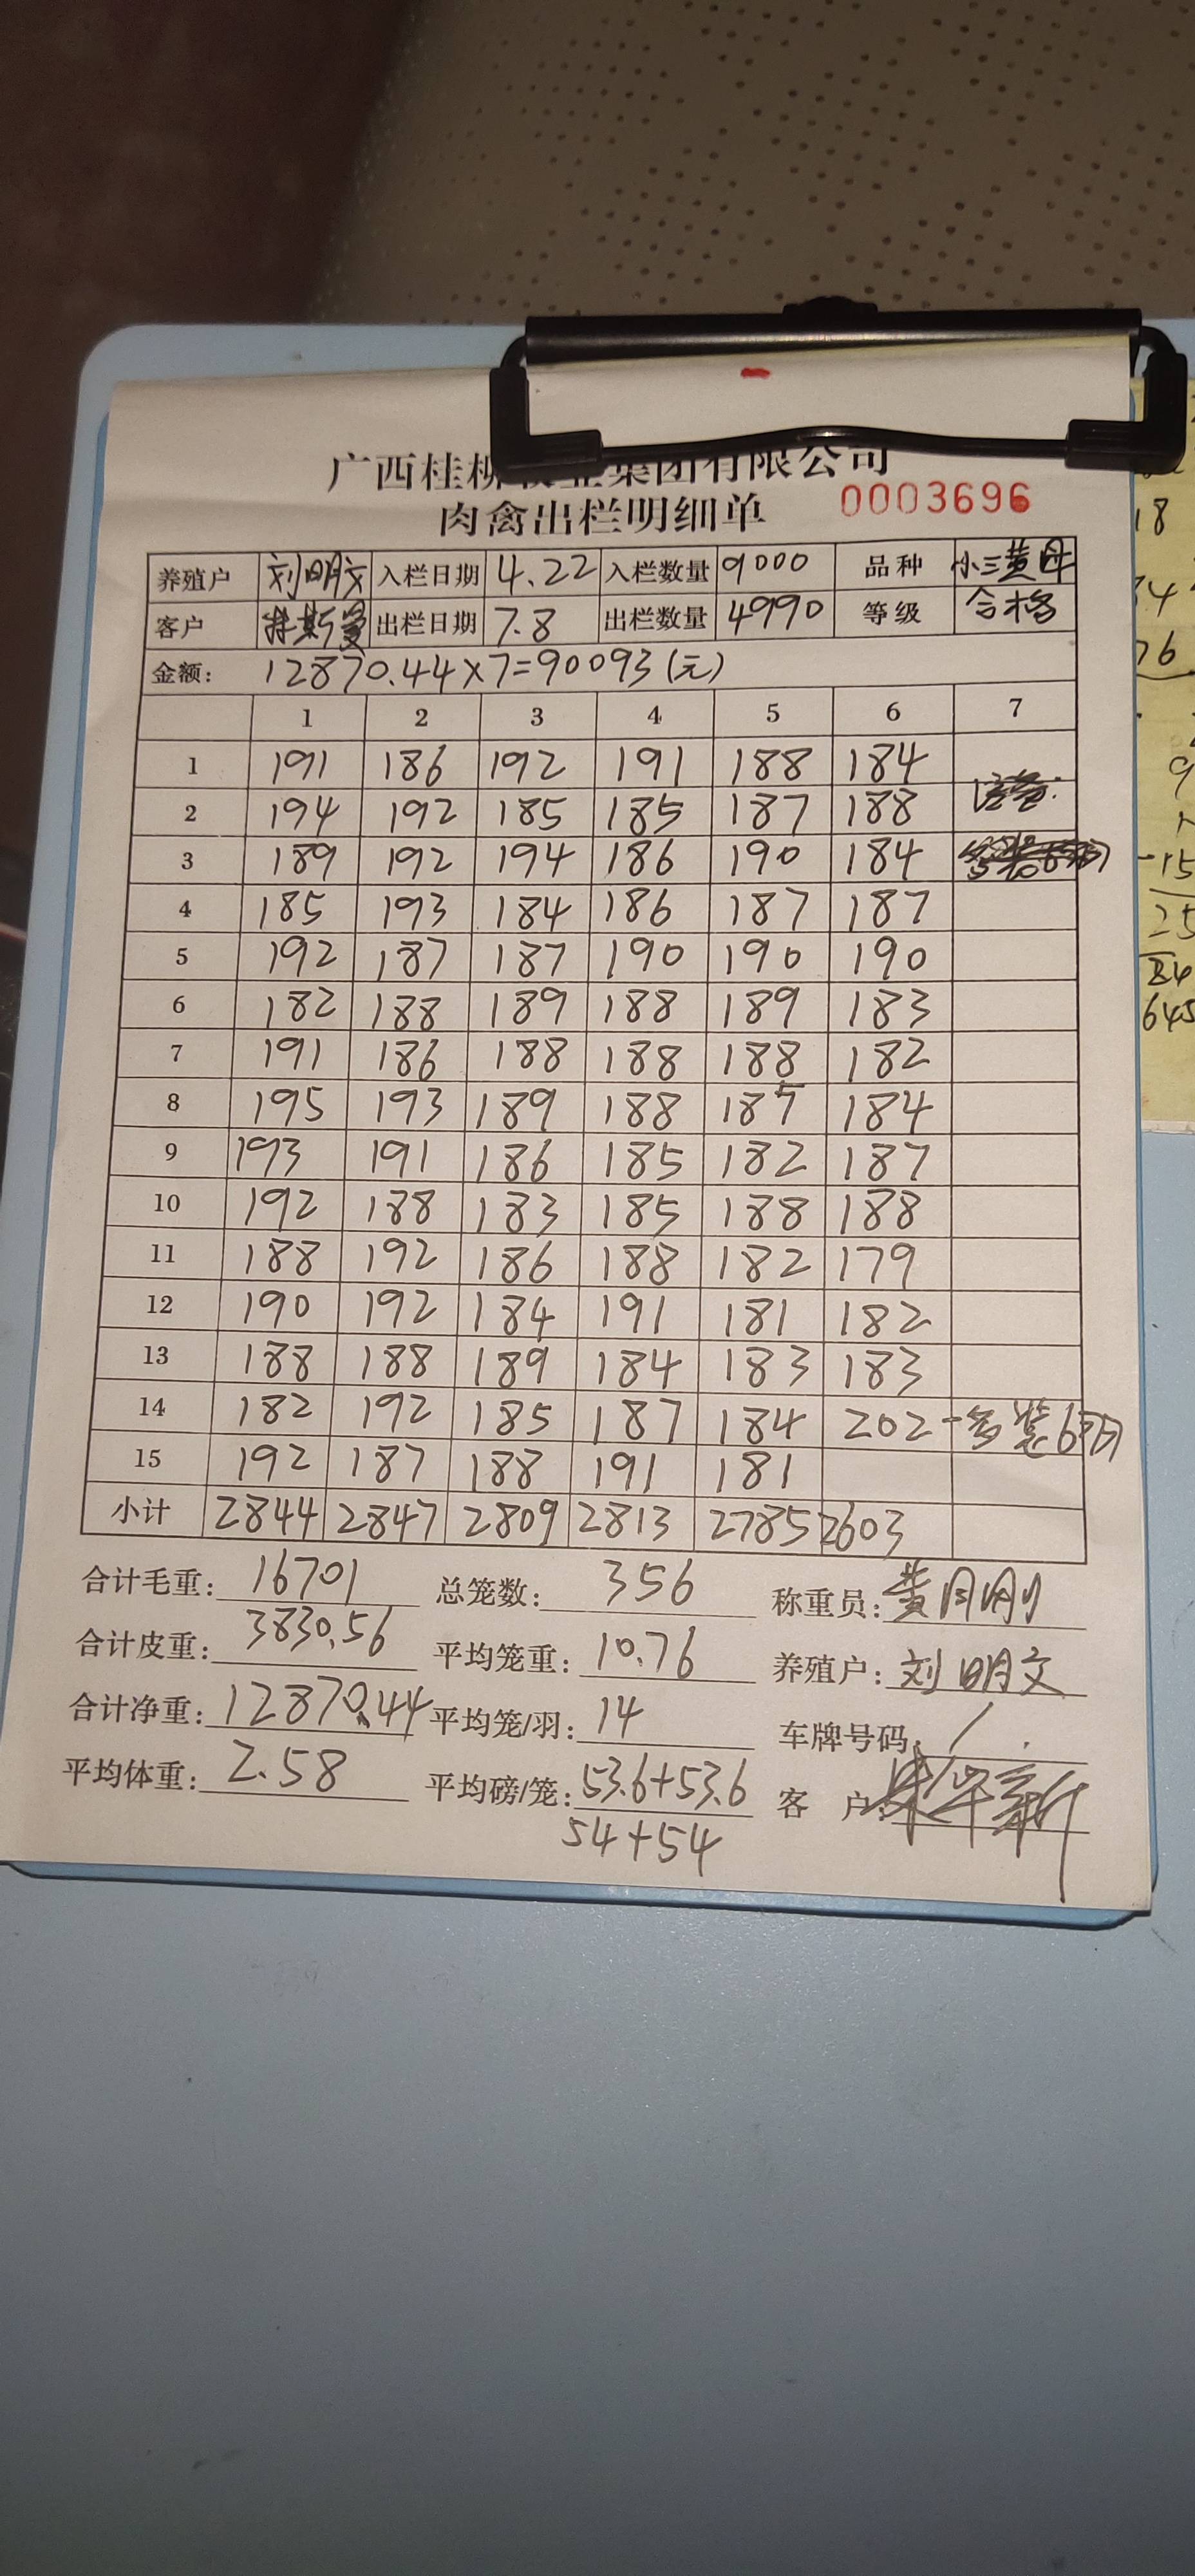 广西桂柳牧业集团有限公司
肉禽出栏明细单 0003696
养殖户 刘明文 入栏日期 4.22 入栏数量 9000 品种 小三黄
客户 出栏日期 7.8 出栏数量 4990 等级 合格
金额: 12870.44×7=90093(元)
1 2 3 4 5 6 7
1 191 186 192 191 188 184
2 194 192 185 185 187 188
3 189 192 194 186 190 184
4 185 193 184 186 187 187
5 192 187 187 190 190 190
6 182 188 189 188 189 183
7 191 186 188 188 188 182
8 195 193 189 188 185 184
9 193 191 186 185 182 187
10 192 188 183 185 188 188
11 188 192 186 188 182 179
12 190 192 184 191 181 182
13 188 188 189 184 183 183
14 182 192 185 187 184 202-多装6羽
15 192 187 188 191 181
小计 2844 2847 2809 2813 2785 2603
合计毛重: 16701 总笼数: 356 称重员: 黄月刚
合计皮重: 3830.56 平均笼重: 10.76 养殖户: 刘明文
合计净重: 12870.44 平均笼/羽: 14 车牌号码: /
平均体重: 2.58 平均磅/笼: 53.6+53.6 客 户:
54+54
18
76
9
-15
25
84
645